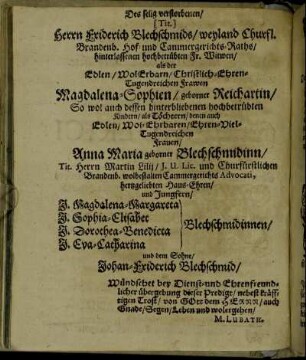 Des selig verstorbenen/
[Tit.]
Herrn Friderich Blechschmids/ weyland Churfl.
Brandenb. Hof- und Cammergerichts-Raths/
hinterlassenen hochbetrübten Fr. Witwen/
als der
Edlen/ Wol-Erbarn/ Christlich-Ehren-
Tugendreichen Frawen
Magdalena-Sophien/ geborner Reichartin/
So wol auch dessen hinterbliebenen hochbetrübten
Kindern/ als Töchtern/ denen auch
Edlen/ Wol-Ehrbaren/ Ehren-Viel-
Tugendreichen
Frauen/
Anna Maria geborner Blechschmidinn/
Tit. Herrn Martin Eilij/ J. U. Lic. und Churfürstlichen
Brandenb. wolbestalten Cammergerichts Advocati,
hertzgeliebten Haus-Ehren/
und Jungfern/
J. Magdalena-Margareta
J. Sophia-Elisabet
J. Dorothea-Benedicta
J. Eva-Catharina
Blechschmidinnen/
und dem Sohne/
Johan-Friderich Blechschmid/
Wündschet bey Dienst- und Ehrenfreund-
licher übergebung dieser Predigt/ nebst kräff-
tigen Trost/ von GOtt dem HERRN/ auch
Gnade/ Segen/ Leben und wolergehen/
M. LUBATH.